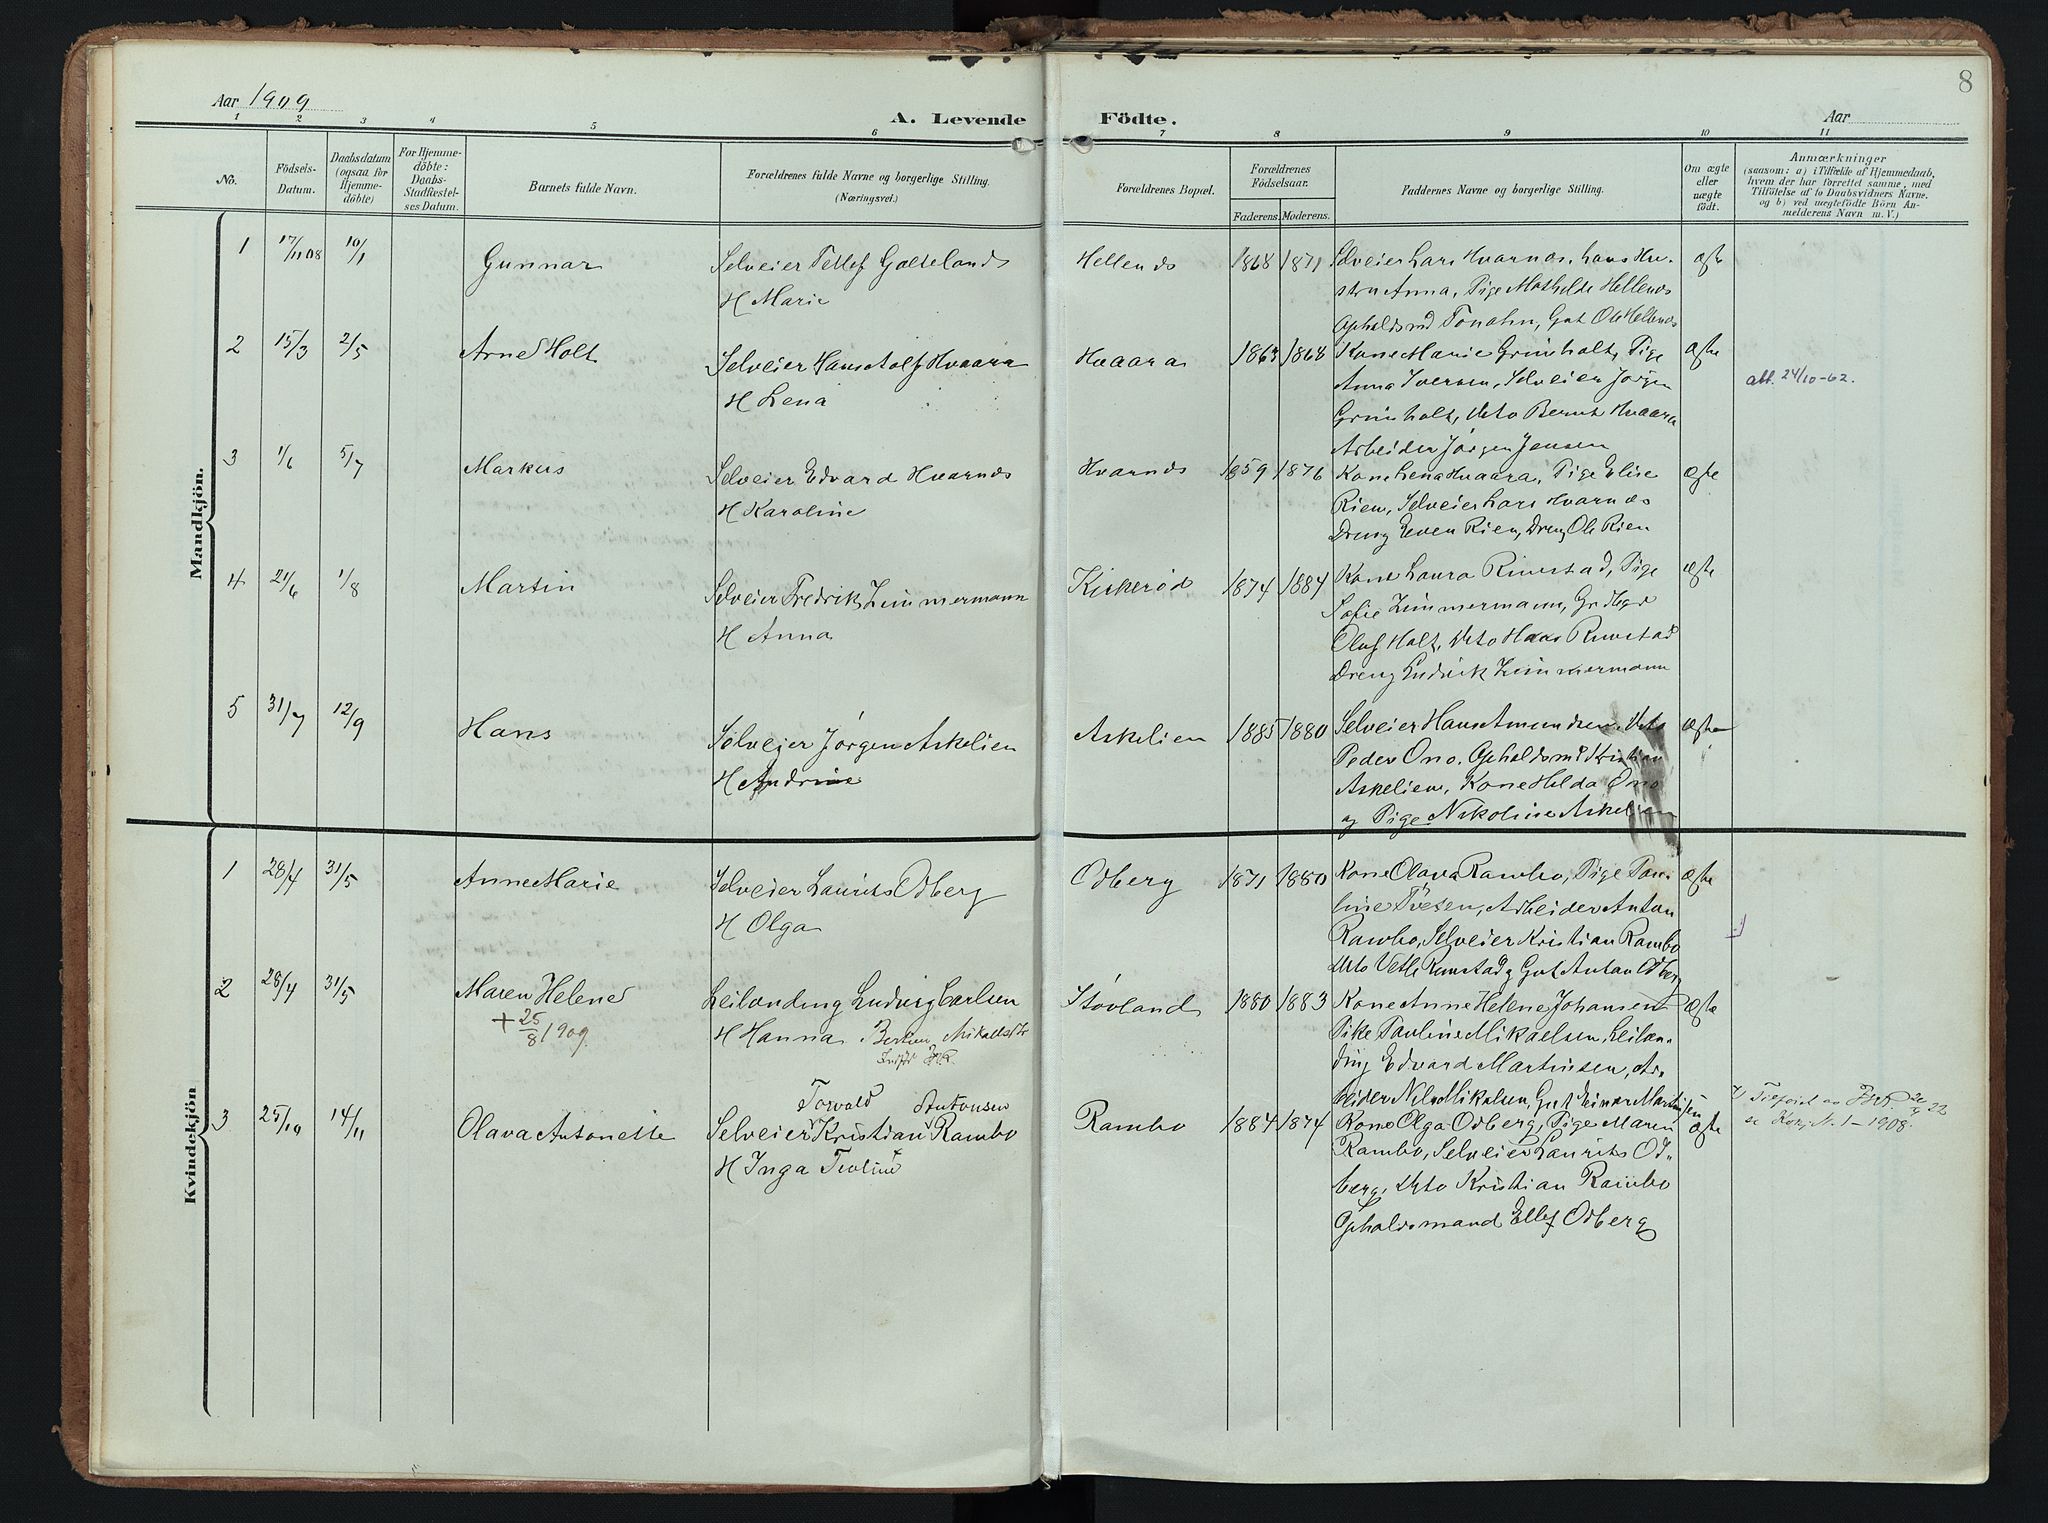 8
Aar 1909
A. Levende Födte.
Aar
1 2 3 4 5 6 7 8 9 10 11
No.
Födsels-Datum.
Daabsdatum (ogsaa for Hjemme-döbte)
For Hjemme-döbte: Daabs-Stadfæstel-ses Datum.
Barnets fulde Navn.
Forældrenes fulde Navne og borgerlige Stilling. (Næringsvei.)
Forældrenes Bopæl.
Forældrenes Födselsaar.
Faderens. Moderens.
Faddernes Navne og borgerlige Stilling.
Om ægte eller uægte födt.
Anmærkninger
(saasom: a) i Tilfælde af Hjemmedaab,
hvem der har forrettet samme, med
Tilföielse af to Daabsvidners Navne.
og b) ved uægtefödte Börn An-
melderens Navn m. V.)
Mandkjön.
1 17/11 08 10/1 Gunnar Selveier Tellef Goltelands Hellends 1868 1871 Selveier Lars Hvarnes, hans Hu- ægte
H Marie stru Anna, Pige Mathilde Hellends
Opholdsmd Ole Hellends
2 15/3 2/5 Arne Holt Selveier Hans Adolf Hvaara Hvaara 1863 1868 Kone Marie Grimholt, Pige ægte
H Lena Anna Iversen, Selveier Jørgen att. 24/10-62.
Grimholt, Dito Bernt Hvaara
Arbeider Jørgen Jensen
3 1/6 5/7 Markus Selveier Edvard Hvarnes Hvarnes 1859 1876 Kone Lena Hvaara, Pige Elise ægte
H Karoline Rien, Selveier Lars Hvarnes
Dreng Even Rien, Dreng Ole Rien
4 21/6 1/8 Martin Selveier Fredrik Zimmermann Kirkerød 1874 1884 Kone Laura Rimstad, Pige ægte
H Anna Sofie Zimmermann,
Oluf Holt, Dito Hans Rimstad
Dreng Ludvik Zimmermann
5 31/7 12/9 Hans Selveier Jørgen Askelien Askelien 1885 1880 Selveier Hans Amundsen, Dito ægte
H Andrine Peder Ono. Opholdsmd Kristian
Askelien, Kone Hilda Ono
og Pige Nikoline Askelien
Kvindekjön
1 28/4 31/5 Anne Marie Selveier Laurits Odberg Odberg 1871 1880 Kone Olava Rambo, Pige Pau- ægte
H Olga line Tvesen, Arbeider Anton
Rambo, Selveier Kristian Rambo
Dito Vetle Rimstad og Gut Anton Odberg
2 28/4 31/5 Maren Helene Leilending Ludvig Carlsen Støvland 1880 1883 Kone Anne Helene Johansen ægte
+ 25/8 1909. H Hanna Mikaelsdtr Pike Pauline Mikaelsen, Leilen-
ding Edvard Martinsen, Ar-
beider Nils Mikalsen, Gut Einar Martinsen
Torvald Antonsen
3 25/10 14/11 Olava Antonette Selveier Kristian Rambo Rambo 1884 1874 Kone Olga Odberg, Pige Maren ægte
H Inga Rambo, Selveier Laurits Od-
berg, Dito Kristian Rambo
Opholdsmand Ellef Odberg
Tilføiet av 20/9 22
se N. 1 - 1908.